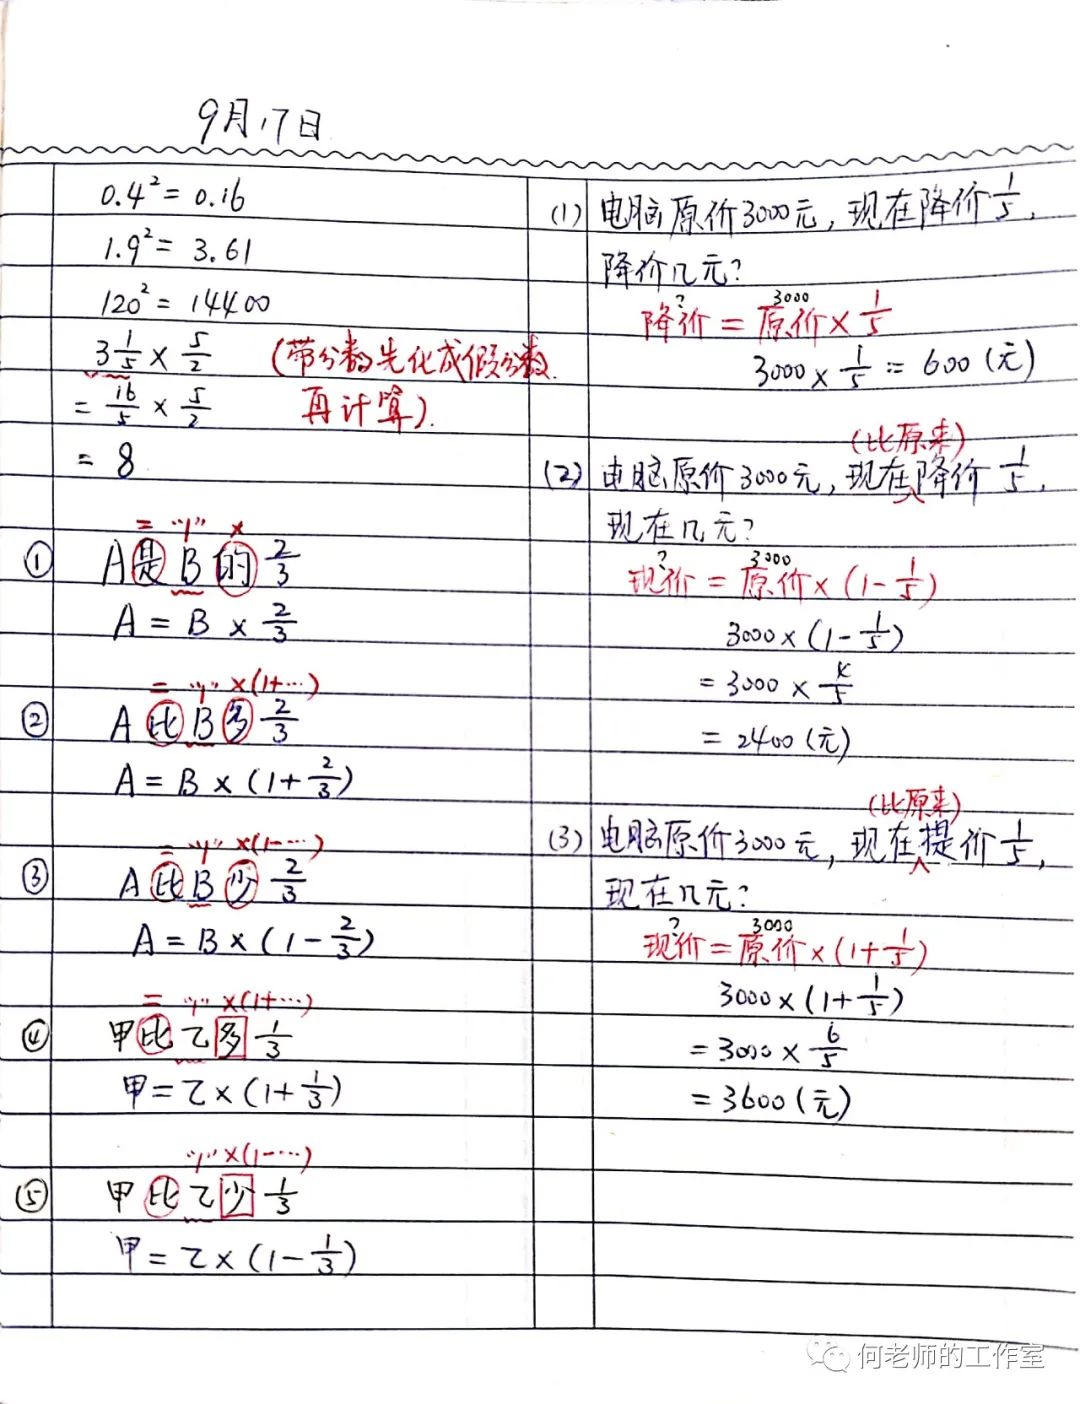 9月17日
0.4² = 0.16
1.9² = 3.61
120² = 14400
3 1/5 × 5/2 (带分数先化成假分数
= 16/5 × 5/2 再计算).
= 8
= "1" ×
① A是B的 2/3
A = B × 2/3
= "1" ×(1+…)
② A比B多 2/3
A = B × (1 + 2/3)
= "1" ×(1-…)
③ A比B少 2/3
A = B × (1 - 2/3)
= "1" ×(1+…)
④ 甲比乙多 1/3
甲 = 乙 × (1 + 1/3)
"1" ×(1-…)
⑤ 甲比乙少 1/3
甲 = 乙 × (1 - 1/3)
(1) 电脑原价3000元, 现在降价 1/5,
降价几元?
? 3000
降价 = 原价 × 1/5
3000 × 1/5 = 600 (元)
(比原来)
(2) 电脑原价3000元, 现在降价 1/5,
现在几元?
? 3000
现价 = 原价 × (1 - 1/5)
3000 × (1 - 1/5)
= 3000 × 4/5
= 2400 (元)
(比原来)
(3) 电脑原价3000元, 现在提价 1/5,
现在几元?
? 3000
现价 = 原价 × (1 + 1/5)
3000 × (1 + 1/5)
= 3000 × 6/5
= 3600 (元)
何老师的工作室